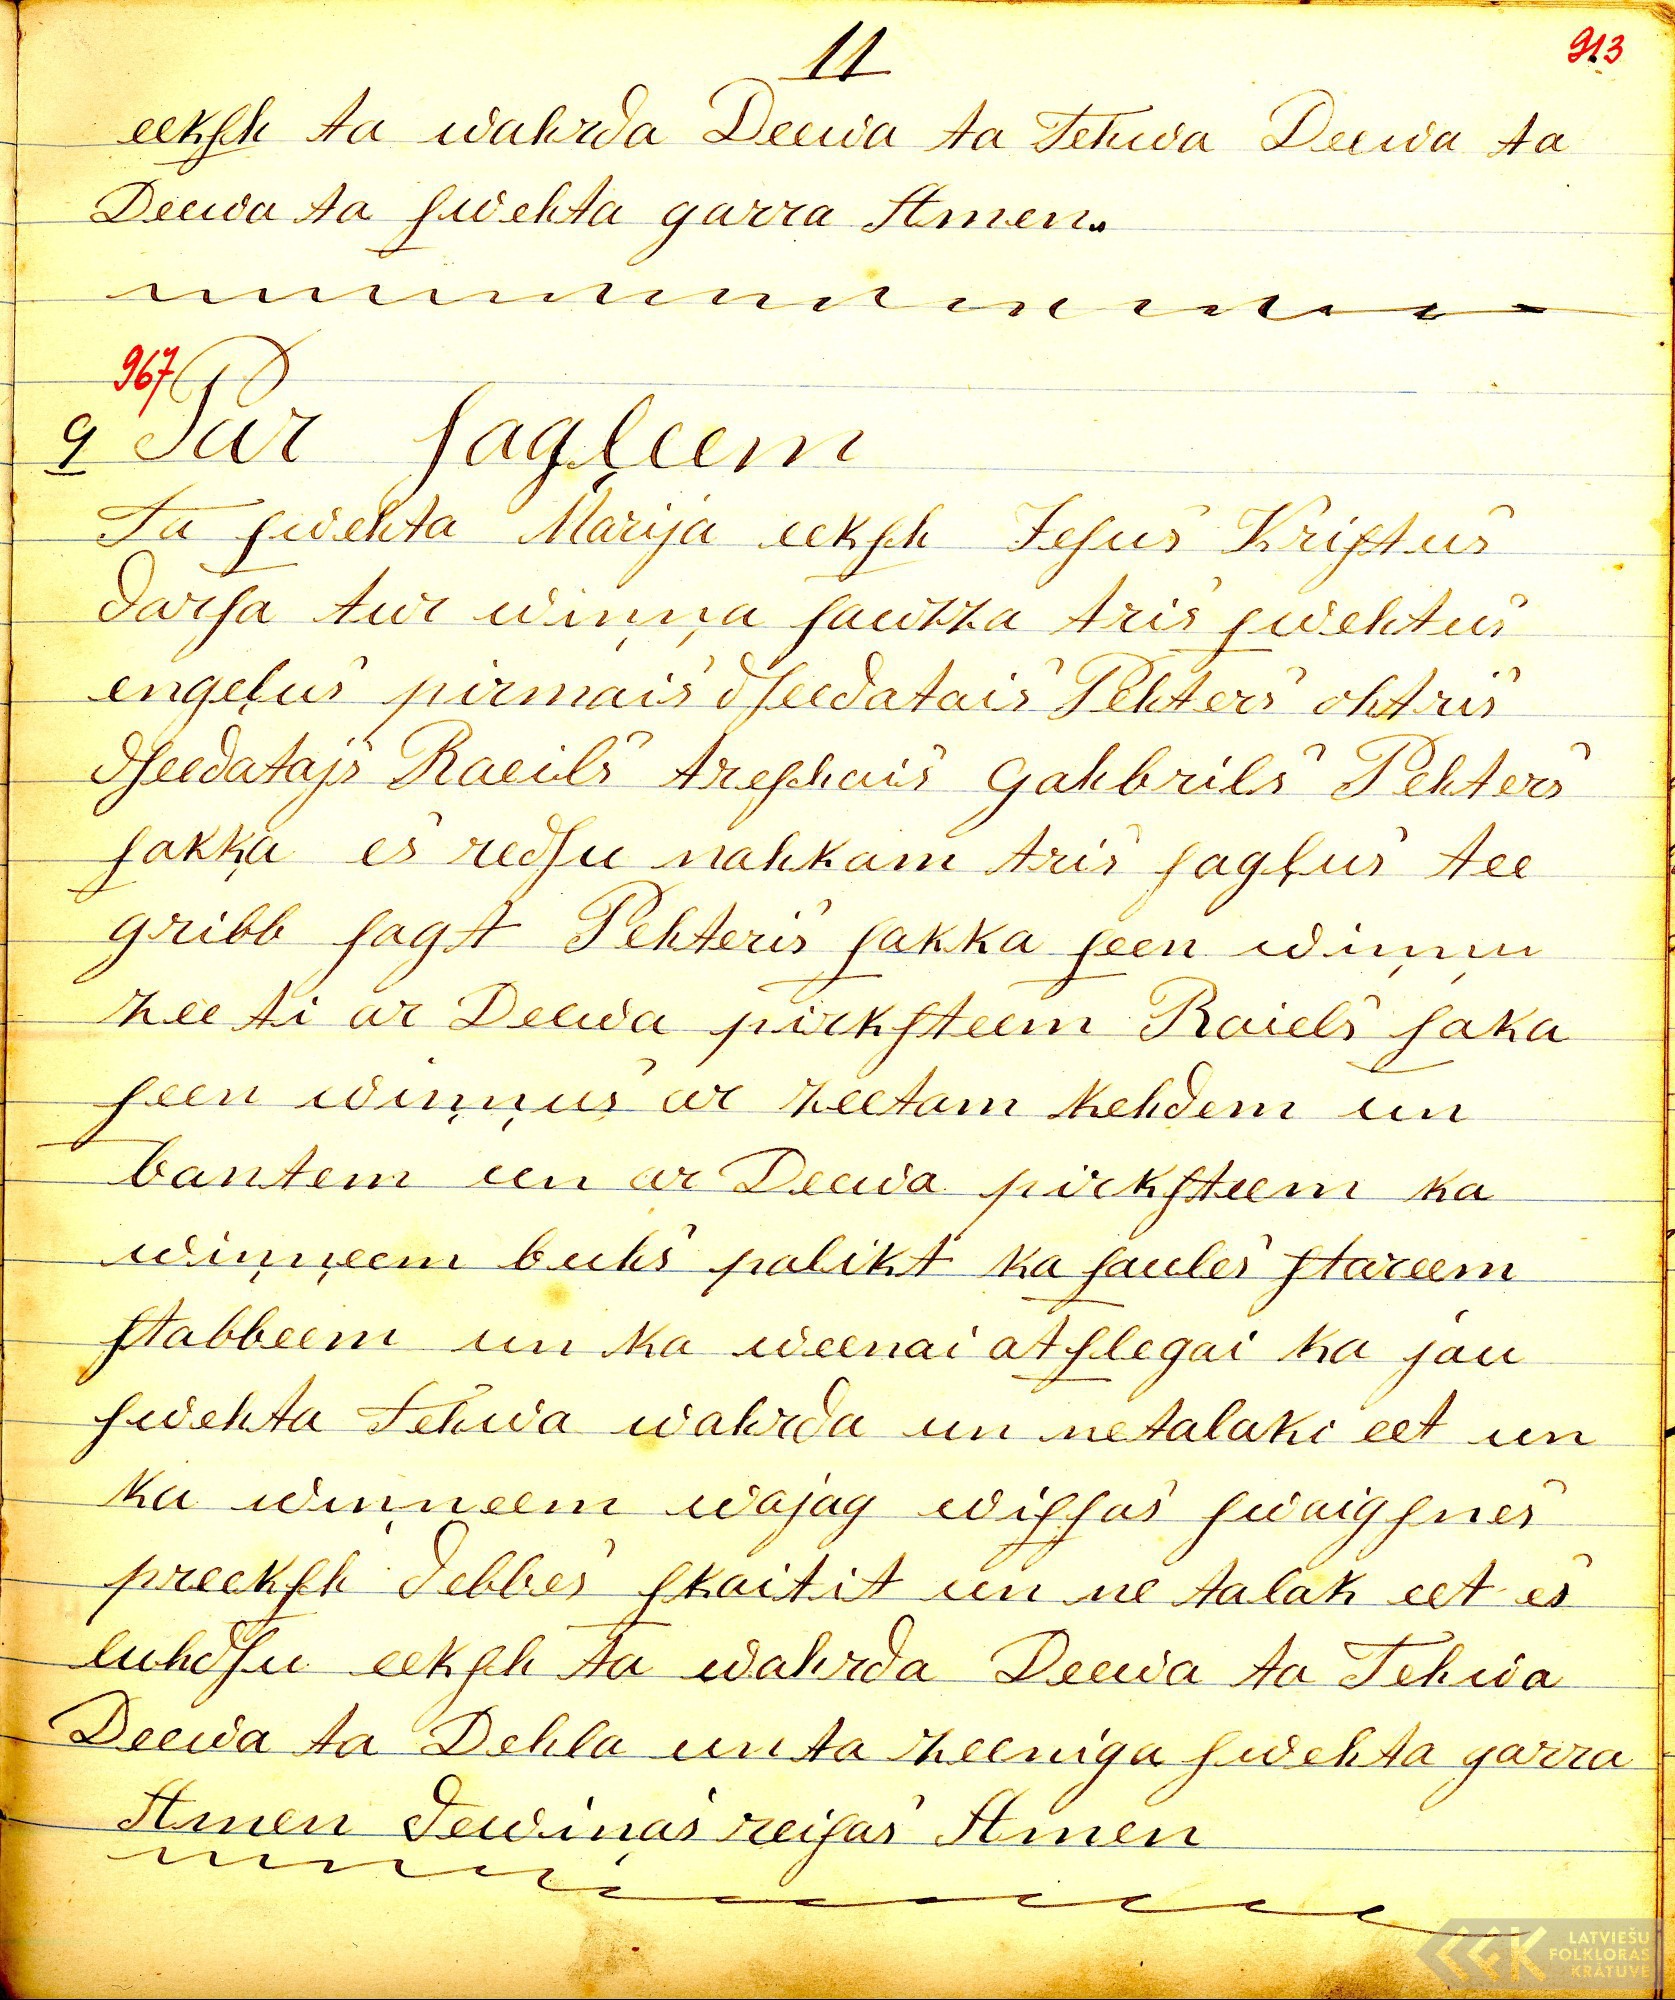 11
913
eekſch ta wahrda Deewa ta Tehwa Deewa ta
Deewa ta ſwehta garra Amen.
967
9 Par ſagļeem
Ta ſwehta Marija eekſch Jeſus Kriſtus
darſa tur wiņņa ſaukka tris ſwehtus
engeļus pirmais dſeedatais Pehters ohtris
dſeedatajs Raeils treſchais Gahbrils Pehters
ſakķa es redſu nahkam tris ſagļus tee
gribb ſagt Pehteris ſakka ſeen wiņņu
zeeti ar Deewa pirkſteem Raiels ſaka
ſeen wiņņus ar zeetam kehdem un
bantem un ar Deewa pirkſteem ka
wiņņeem buhs palikt ka ſaules ſtareem
ſtabbeem un ka weenai atſlegai ka jau
ſwehta Tehwa wahrda un netalaki eet un
ka wiņneem wajag wiſſas ſwaigſnes
preekſch debbes ſkaitit un ne talak eet es
luhdſu eekſch ta wahrda Deewa ta Tehwa
Deewa ta Dehla un ta zeeniga ſwehta garra
Amen dewiņas reiſas Amen
LATVIEŠU
FOLKLORAS
KRĀTUVE